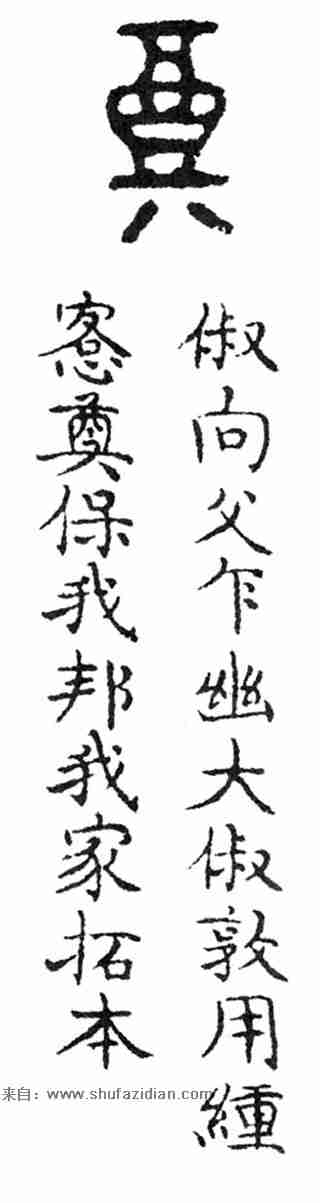 奠
俶向父乍幽大俶敦用緟
窸奠保我邦我家拓本
来自：www.shufazidian.com